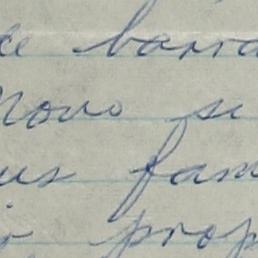 de barra
Novo se
us fam
r prop